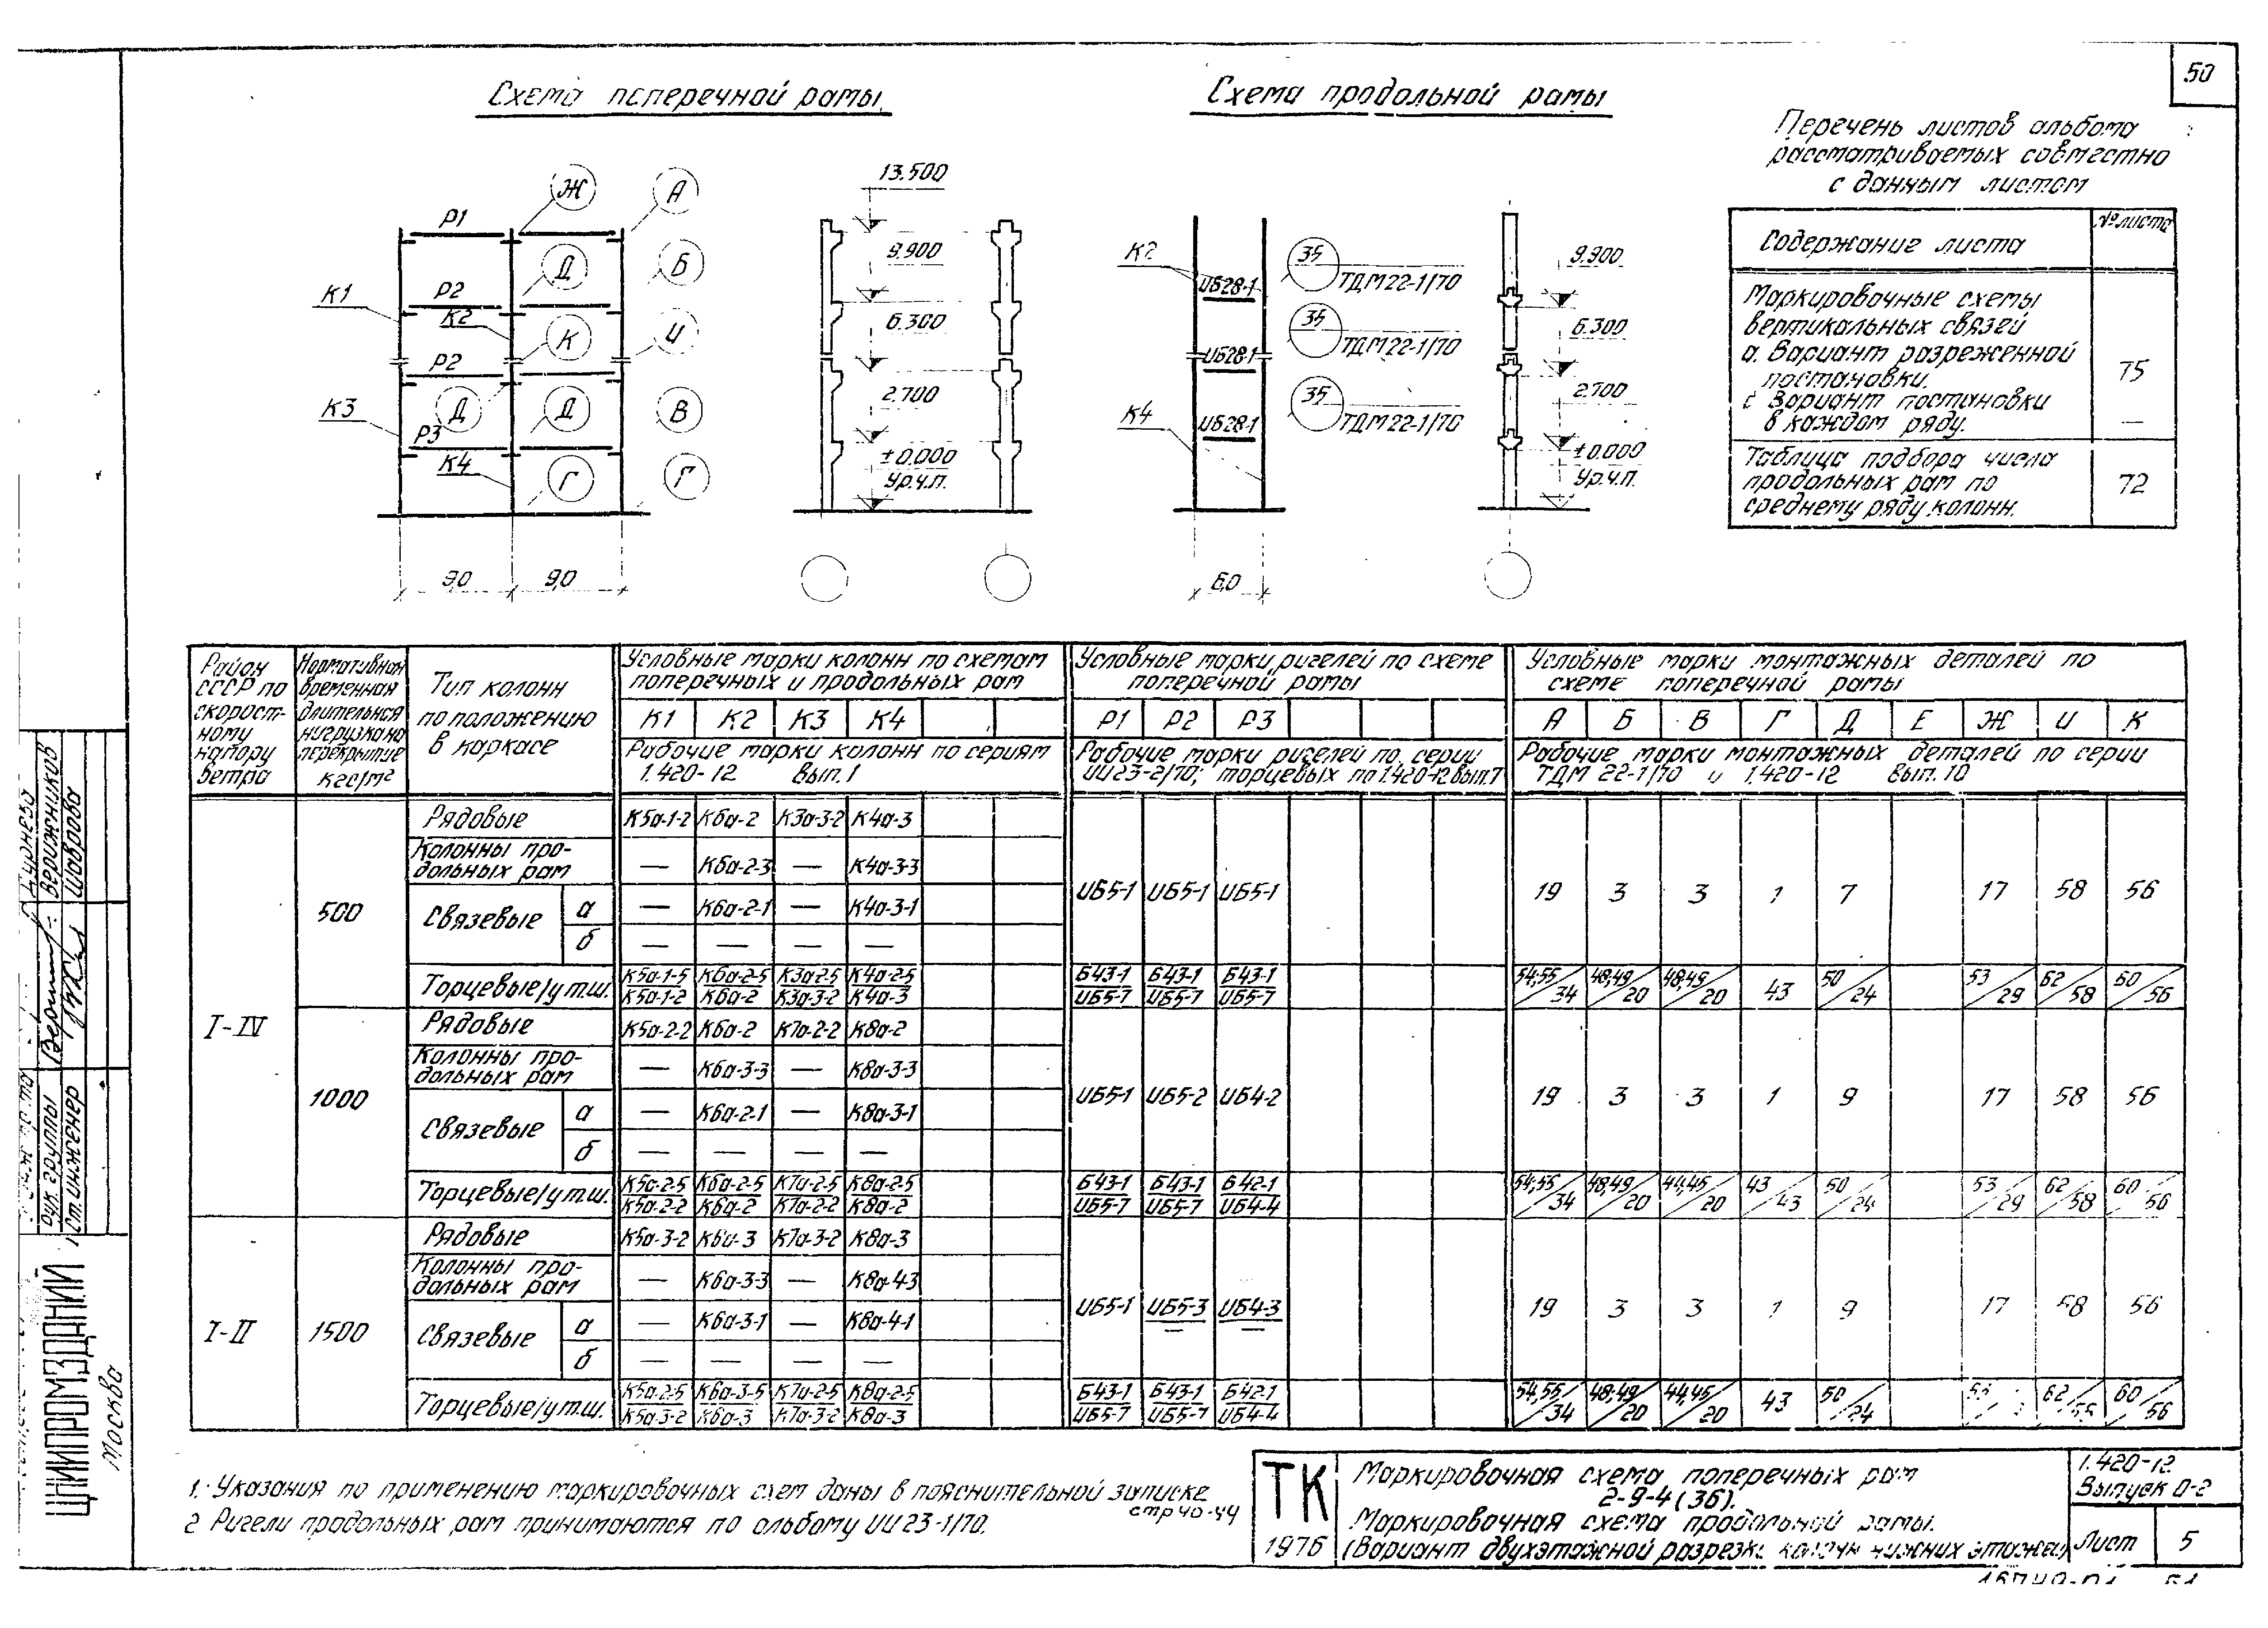 50
Схема поперечной рамы
Схема продольной рамы
Перечень листов альбома
рассматриваемых совместно
с данным листом
Содержание листа
№ листа
Маркировочные схемы
вертикальных связей
а. Вариант разреженной
постановки.
75
Вариант постановки
в каждом ряду.
—
Таблица подбора числа
продольных рам по
среднему ряду колонн.
72
Ж
А
Р1
Д
Б
К1
Р2
К2
К
И
Р2
К3
Д
Д
В
Р3
К4
Г
Г
9,0
9,0
13.500
9.900
6.300
2.700
±0.000
Ур.ч.п.
К2
ИБ28-1
35
ТДМ22-1/70
ИБ28-1
35
ТДМ22-1/70
К4
ИБ28-1
35
ТДМ22-1/70
6,0
9.900
6.300
2.700
±0.000
Ур.ч.п.
Район
СССР по
скорост-
ному
напору
ветра
Нормативная
временная
длительная
нагрузка на
перекрытие
кгс/м²
Тип колонн
по положению
в каркасе
Условные марки колонн по схемам
поперечных и продольных рам
К1 К2 К3 К4
Рабочие марки колонн по сериям
1.420-12 вып.1
Условные марки ригелей по схеме
поперечной рамы
Р1 Р2 Р3
Рабочие марки ригелей по серии
ИИ23-2/70; торцевых по 1.420-12 вып.7
Условные марки монтажных деталей по
схеме поперечной рамы
А Б В Г Д Е Ж И К
Рабочие марки монтажных деталей по серии
ТДМ 22-1/70 и 1.420-12 вып.10
I-IV
500
Рядовые К5а-1-2 К6а-2 К3а-3-2 К4а-3
Колонны про-
дольных рам — К6а-2-3 — К4а-3-3
Связевые а — К6а-2-1 — К4а-3-1
б — — — —
ИБ5-1 ИБ5-1 ИБ5-1
19 3 3 1 7 17 58 56
Торцевые/у т.ш.
К5а-1-5 К6а-2-5 К3а-2-5 К4а-2-5
К5а-1-2 К6а-2 К3а-3-2 К4а-3
Б43-1 Б43-1 Б43-1
ИБ5-7 ИБ5-7 ИБ5-7
54,55/34 48,49/20 48,49/20 43 50/24 53/29 62/58 60/56
1000
Рядовые К5а-2-2 К6а-2 К7а-2-2 К8а-2
Колонны про-
дольных рам — К6а-3-3 — К8а-3-3
Связевые а — К6а-2-1 — К8а-3-1
б — — — —
ИБ5-1 ИБ5-2 ИБ4-2
19 3 3 1 9 17 58 56
Торцевые/у т.ш.
К5а-2-5 К6а-2-5 К7а-2-5 К8а-2-5
К5а-2-2 К6а-2 К7а-2-2 К8а-2
Б43-1 Б43-1 Б42-1
ИБ5-7 ИБ5-7 ИБ4-4
54,55/34 48,49/20 44,45/20 43/43 50/24 53/29 62/58 60/56
I-II
1500
Рядовые К5а-3-2 К6а-3 К7а-3-2 К8а-3
Колонны про-
дольных рам — К6а-3-3 — К8а-4-3
Связевые а — К6а-3-1 — К8а-4-1
б — — — —
ИБ5-1 ИБ5-3 ИБ4-3
— —
19 3 3 1 9 17 58 56
Торцевые/у т.ш.
К5а-2-5 К6а-3-5 К7а-2-5 К8а-2-5
К5а-3-2 К6а-3 К7а-3-2 К8а-3
Б43-1 Б43-1 Б42-1
ИБ5-7 ИБ5-7 ИБ4-4
54,55/34 48,49/20 44,45/20 43 50/24 62/58 60/56
1. Указания по применению маркировочных схем даны в пояснительной записке
стр 40-44
2 Ригели продольных рам принимаются по альбому ИИ 23-1/70.
ТК
1976
Маркировочная схема поперечных рам
2-9-4 (36).
Маркировочная схема продольной рамы.
(Вариант двухэтажной разрезки колонн нижних этажей)
1.420-12
Выпуск 0-2
Лист 5
Верижников
Шаврова
Рук. группы
Ст. инженер
ЦНИИПРОМЗДАНИЙ
Москва